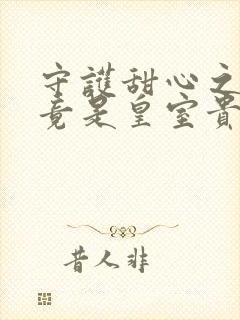 守護甜心之
竟是皇室貴
昔人非